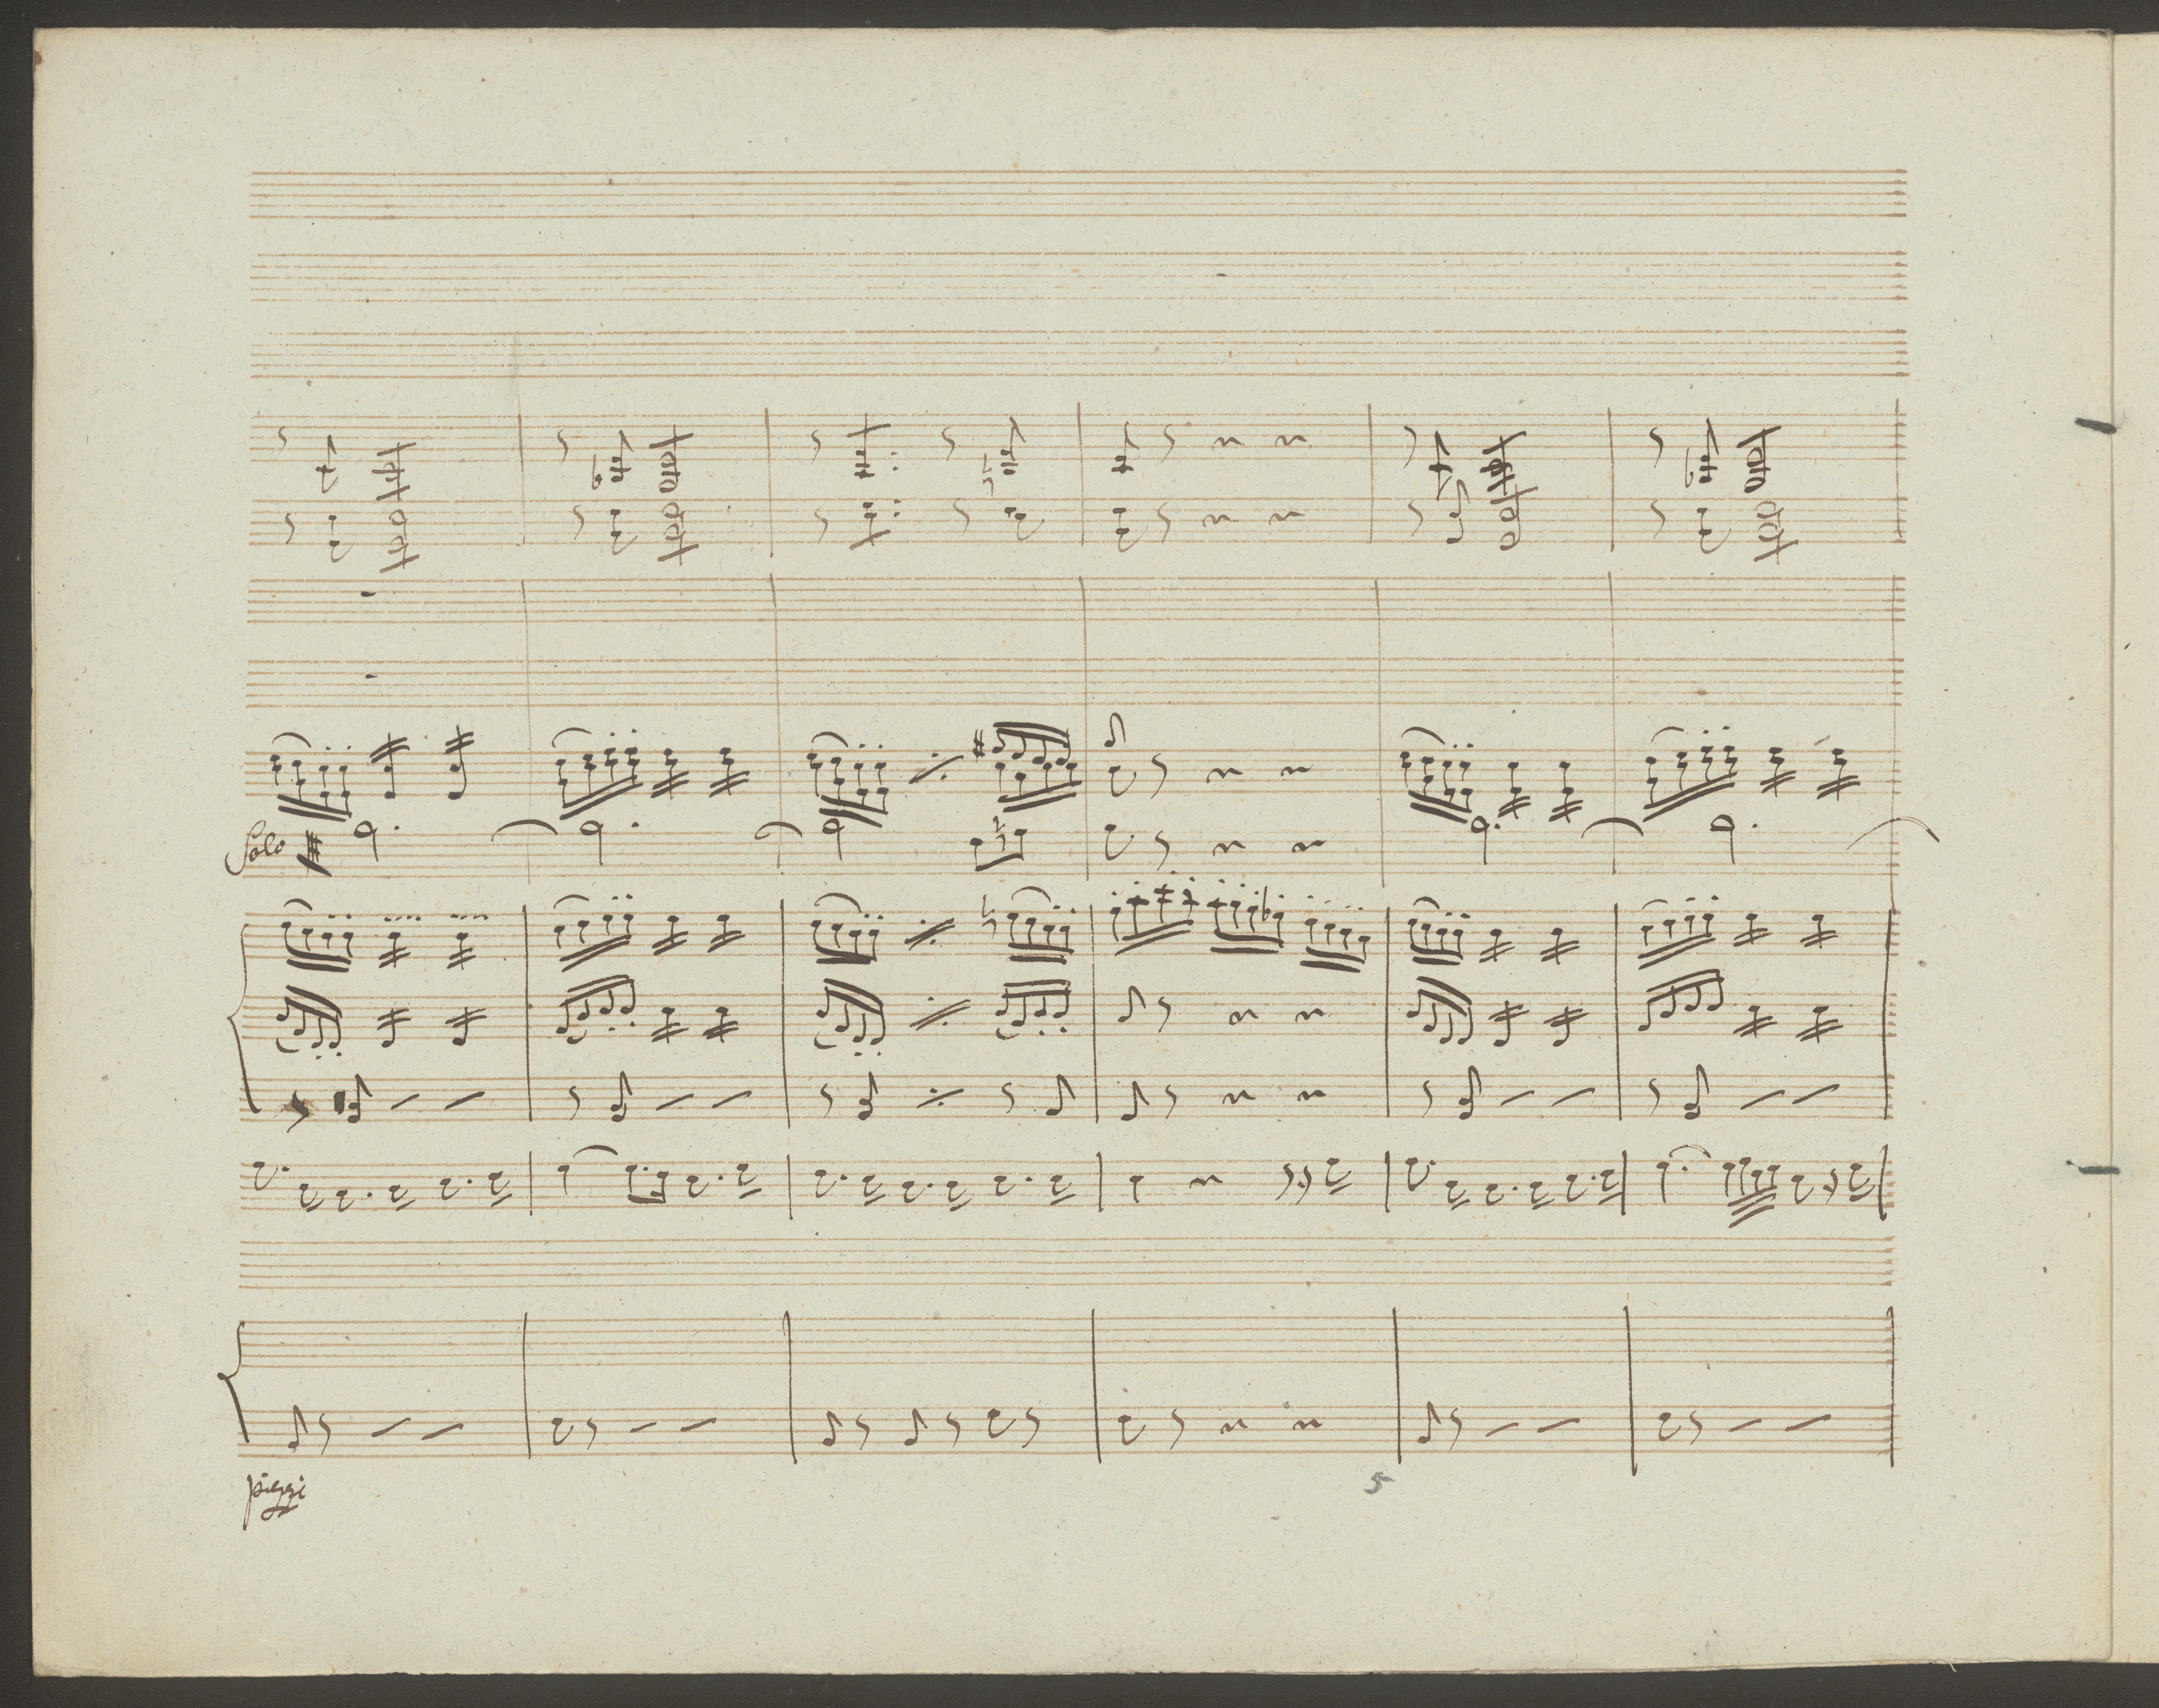 Solo
pizzi
5